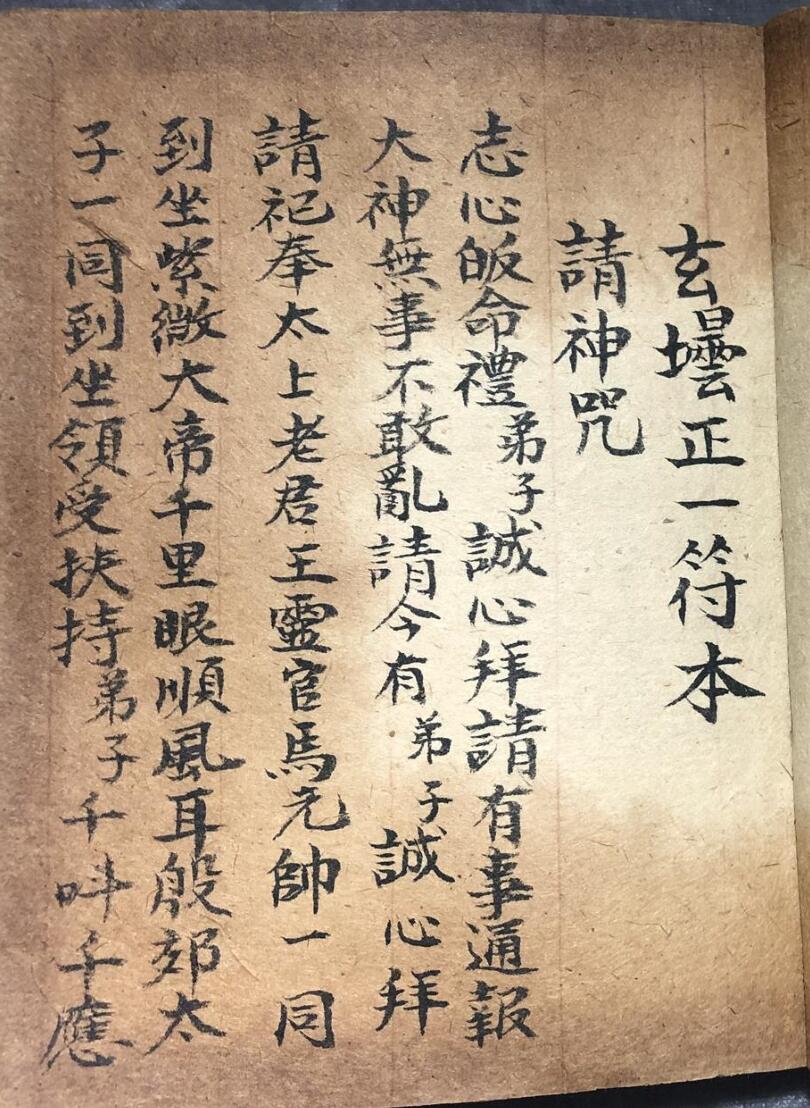 玄壜正一符本
請神咒
志心皈命禮弟子誠心拜請有事通報
大神無事不敢亂請今有弟子誠心拜
請祀奉太上老君王靈官馬元帥一同
到坐紫微大帝千里眼順風耳殷郊太
子一同到坐領受扶持弟子千呌千應